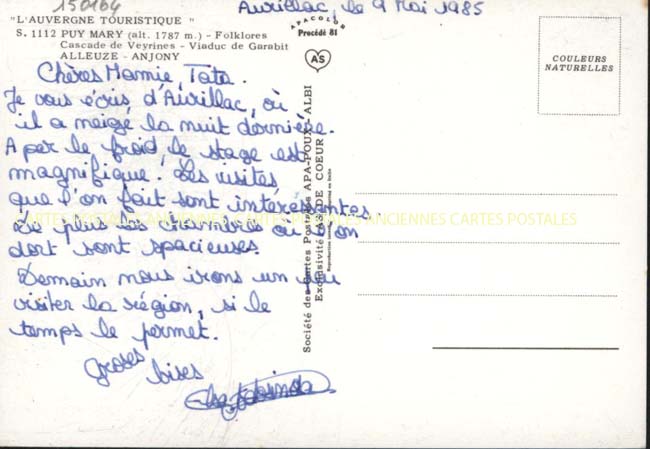 150164
Aurillac, le 9 Mai 1985
"L'AUVERGNE TOURISTIQUE"
S. 1112 PUY MARY (alt. 1787 m.) - Folklores
Cascade de Veyrines - Viaduc de Garabit
ALLEUZE - ANJONY
APACOLOR
Procédé 81
AS
COULEURS
NATURELLES
Chères Mamie, Tata.
Je vous écris d'Aurillac, où
il a neigé la nuit dernière.
A par le froid, le stage est
magnifique. Les visites
que l'on fait sont intéressantes.
De plus les chambres où l'on
dort sont spacieuses.
Demain nous irons un peu
visiter la région, si le
temps le permet.
groses bises
Société des Cartes Postales APA-POUX - ALBI
Exclusivité AS DE COEUR
CARTES POSTALES ANCIENNES CARTES POSTALES ANCIENNES CARTES POSTALES